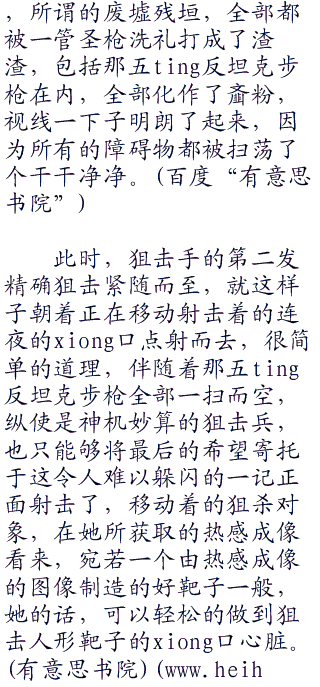 ，所谓的废墟残垣，全部都
被一管圣枪洗礼打成了渣
渣，包括那五ting反坦克步
枪在内，全部化作了齑粉，
视线一下子明朗了起来，因
为所有的障碍物都被扫荡了
个干干净净。(百度“有意思
书院”)
此时，狙击手的第二发
精确狙击紧随而至，就这样
子朝着正在移动射击着的连
夜的xiong口点射而去，很简
单的道理，伴随着那五ting
反坦克步枪全部一扫而空，
纵使是神机妙算的狙击兵，
也只能够将最后的希望寄托
于这令人难以躲闪的一记正
面射击了，移动着的狙杀对
象，在她所获取的热感成像
看来，宛若一个由热感成像
的图像制造的好靶子一般，
她的话，可以轻松的做到狙
击人形靶子的xiong口心脏。
(有意思书院)(www.heih